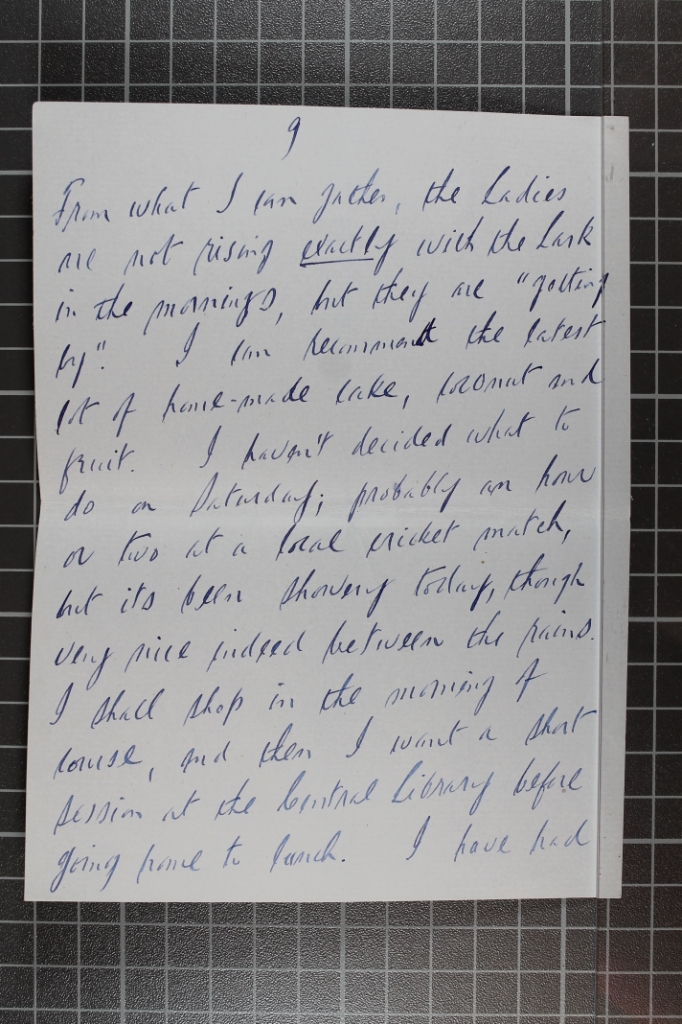 9
From what I can gather, the Ladies
are not rising exactly with the Lark
in the mornings, but they are "getting
by". I can recommend the latest
lot of home-made cake, coconut and
fruit. I haven't decided what to
do on Saturday; probably an hour
or two at a local cricket match,
but its been showery today, though
very nice indeed between the rains.
I shall shop in the morning of
course, and then I want a short
session at the Central Library before
going home to lunch. I have had